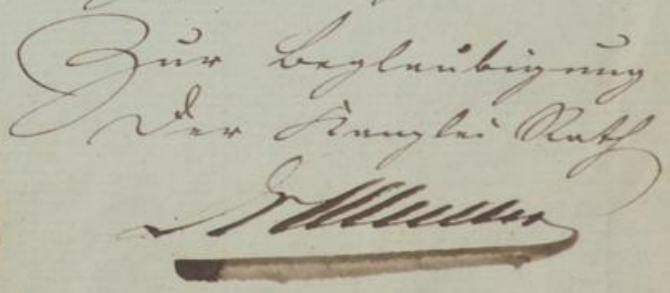 Zur Beglaubigung
Der Kanzlei Rath